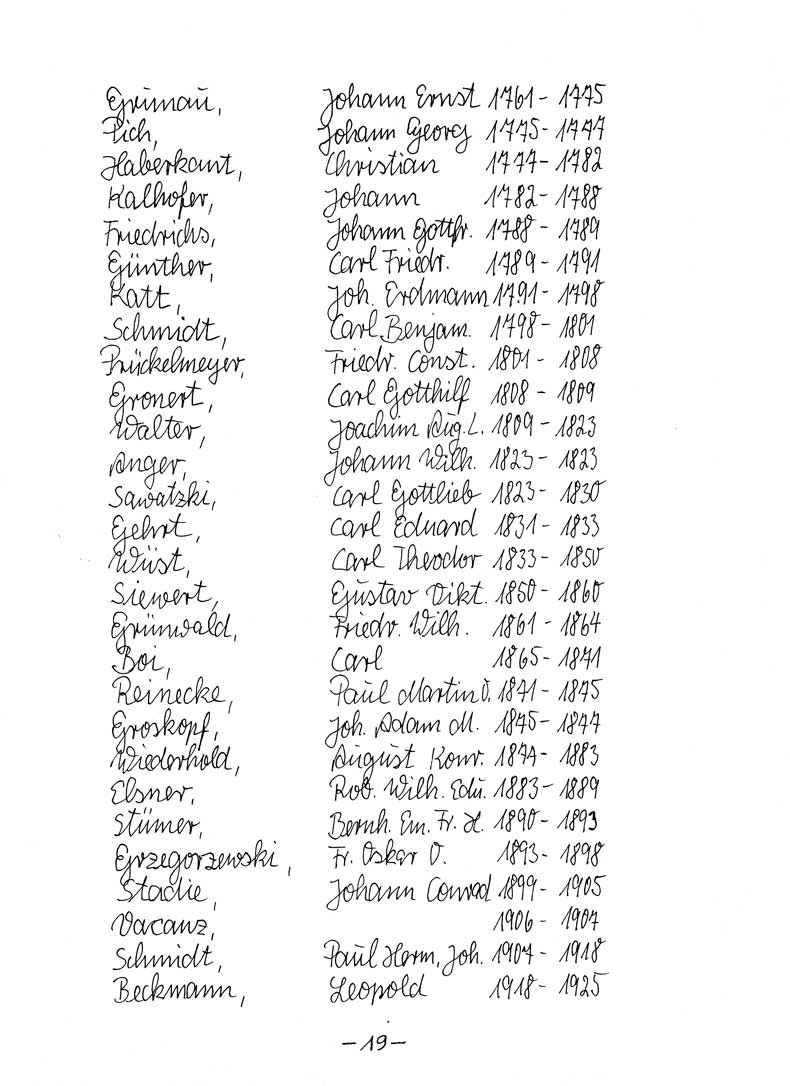 Grunau, Johann Ernst 1761 - 1775
Pich, Johann Georg 1775 - 1777
Haberkant, Christian 1777 - 1782
Kalhofer, Johann 1782 - 1788
Friedrichs, Johann Gottfr. 1788 - 1789
Günther, Carl Friedr. 1789 - 1791
Katt, Joh. Erdmann 1791 - 1798
Schmidt, Carl Benjam. 1798 - 1801
Prückelmeyer, Friedr. Const. 1801 - 1808
Gronert, Carl Gotthilf 1808 - 1809
Walter, Joachim Aug. L. 1809 - 1823
Anger, Johann Wilh. 1823 - 1823
Sawatzki, Carl Gottlieb 1823 - 1830
Gehrt, Carl Eduard 1831 - 1833
Wüst, Carl Theodor 1833 - 1850
Siewert, Gustav Vikt. 1850 - 1860
Grünwald, Friedr. Wilh. 1861 - 1864
Boi, Carl 1865 - 1871
Reinecke, Paul Martin O. 1871 - 1875
Groskopf, Joh. Adam M. 1875 - 1877
Wiederhold, August Konr. 1877 - 1883
Elsner, Rob. Wilh. Edu. 1883 - 1889
Stümer, Bernh. Em. Fr. H. 1890 - 1893
Grzegorzewski, Fr. Oskar O. 1893 - 1898
Stadie, Johann Conrad 1899 - 1905
Vacanz, 1906 - 1907
Schmidt, Paul Herm, Joh. 1907 - 1918
Beckmann, Leopold 1918 - 1925
- 19 -